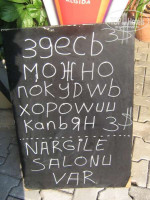 здесь 3$
можно
покудшь
хорошии
капьян 3$
NARGILE
SALONU
VAR